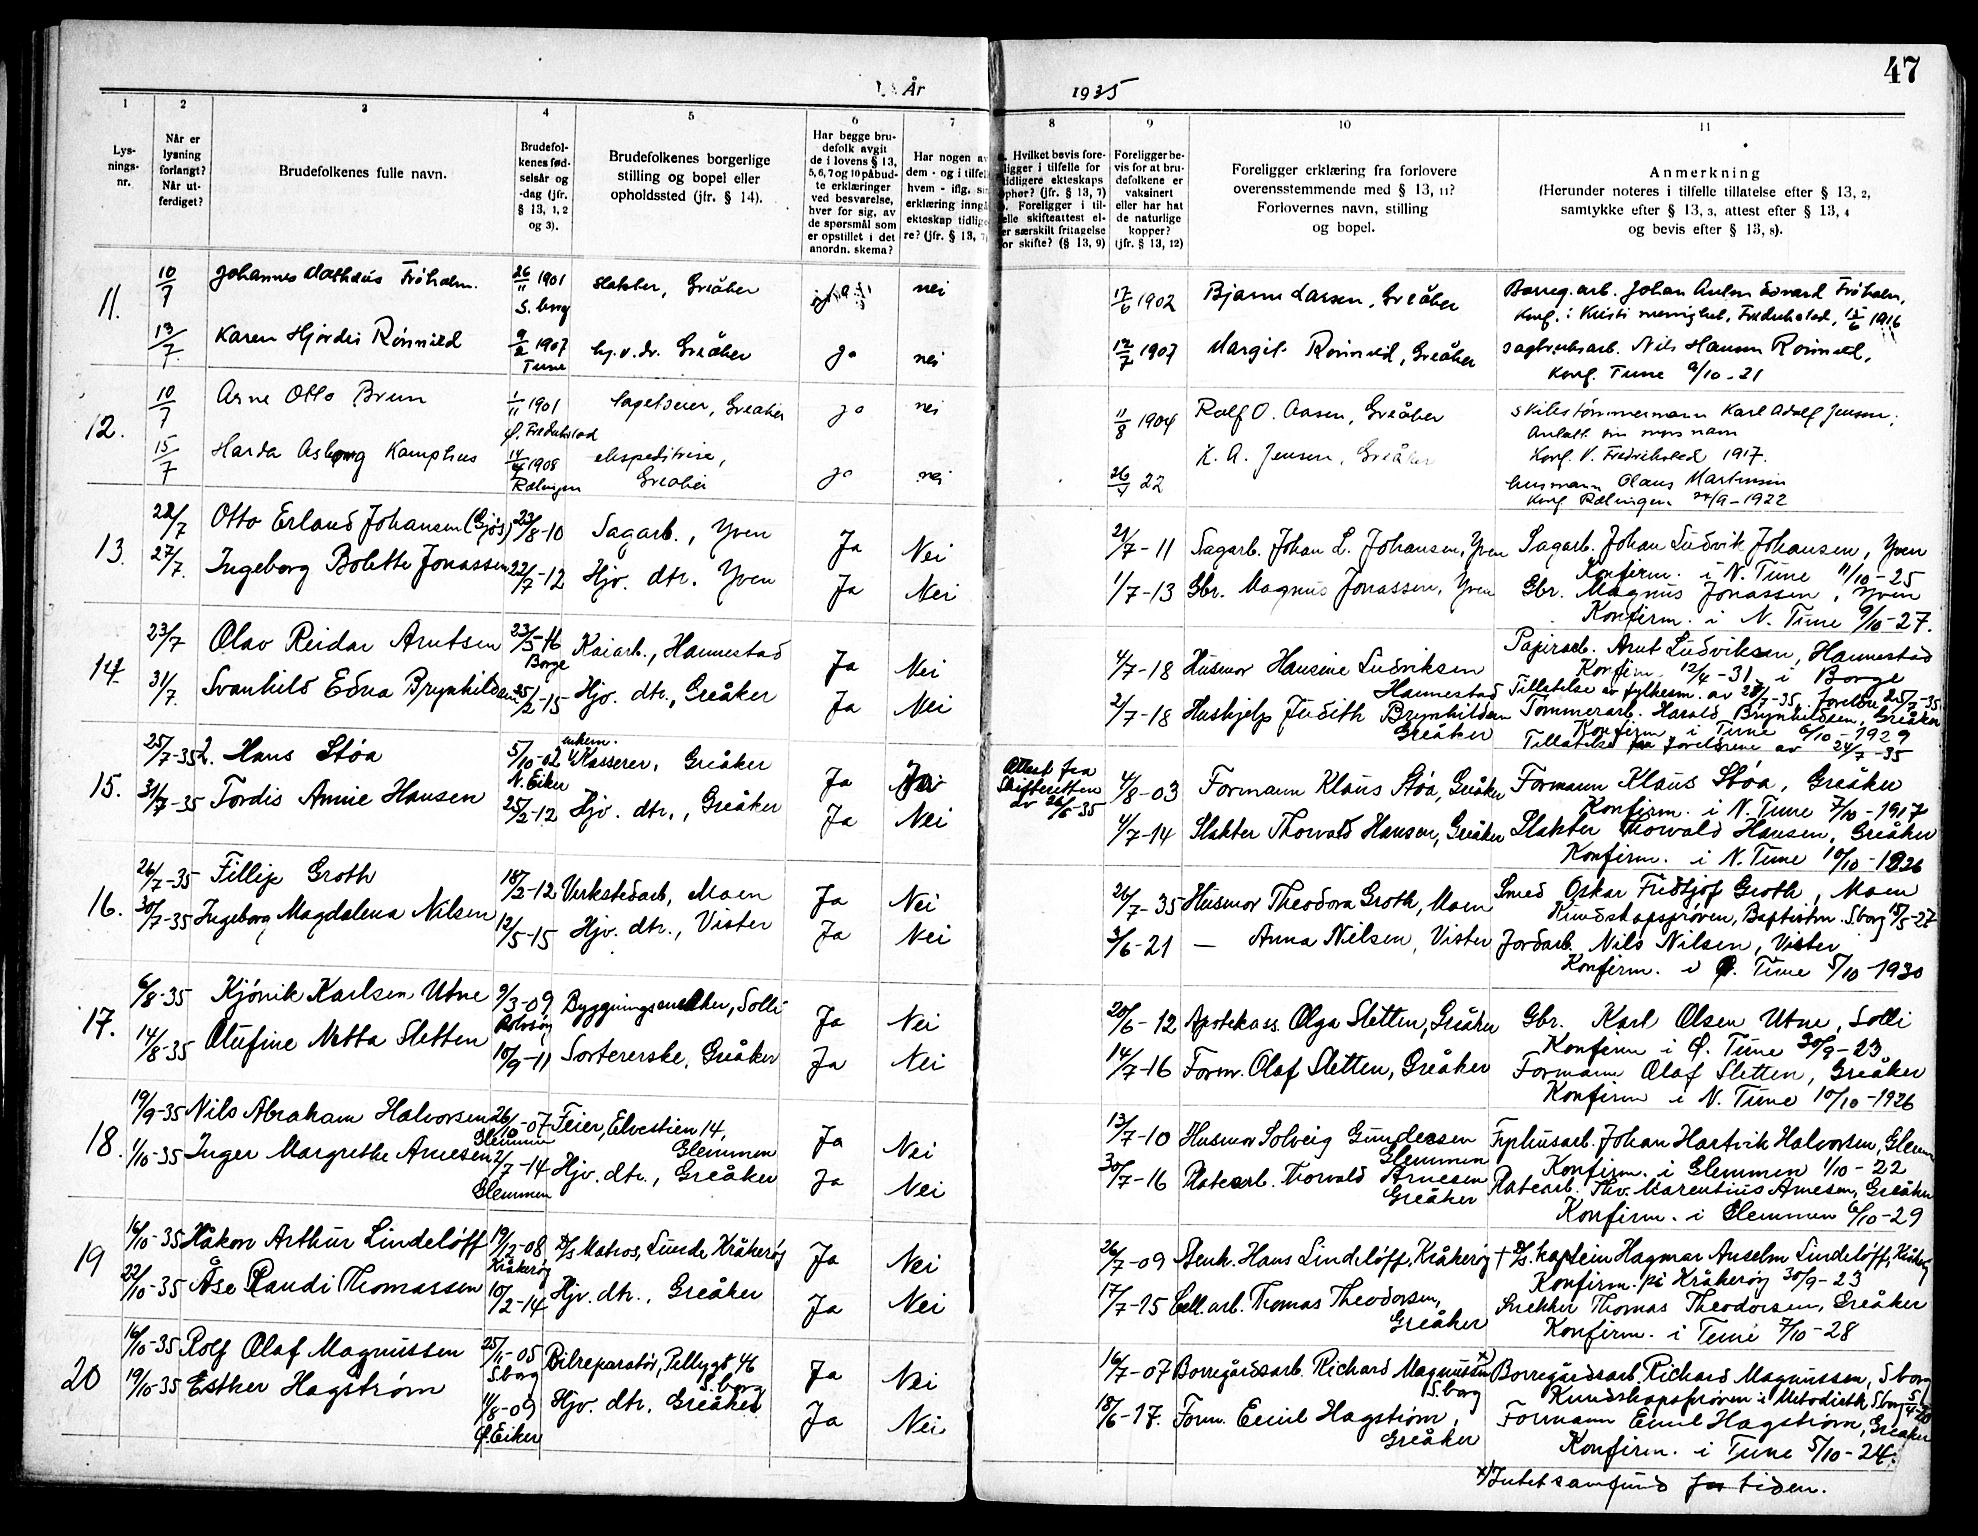 47
År 1935
1 2 3 4 5 6 7 8 9 10 11
Lysnings-nr.
Når er lysning forlangt? Når utferdiget?
Brudefolkenes fulle navn.
Brudefolkenes fødselsår og -dag (jfr. § 13, 1, 2 og 3).
Brudefolkenes borgerlige stilling og bopel eller opholdssted (jfr. § 14).
Har begge brudefolk avgit de i lovens § 13, 5, 6, 7 og 10 påbudte erklæringer ved besvarelse, hver for sig, av de spørsmål som er opstillet i det anordn. skema?
Har nogen av dem - og i tilfelle hvem - iflg. erklæring inngått ekteskap tidligere? (jfr. § 13, 7)
Hvilket bevis foreligger i tilfelle for tidligere ekteskaps ophør? (jfr. § 13, 7) Foreligger i tilfelle skifteattest eller særskilt fritagelse for skifte? (§ 13, 9)
Foreligger bevis for at brudefolkene er vaksinert eller har hat de naturlige kopper? (jfr. § 13, 12)
Foreligger erklæring fra forlovere overensstemmende med § 13, 11? Forlovernes navn, stilling og bopel.
Anmerkning (Herunder noteres i tilfelle tillatelse efter § 13, 2, samtykke efter § 13, 3, attest efter § 13, 4 og bevis efter § 13, 8).
11. 10/7 Johannes Mathæus Fröholm. 26/11 1901 S.borg slakter, Greåker nei 17/6 1902 Bjarne Larsen, Greåker Borreg.arb. Johan Anton Edvard Fröholm,
Konf. i Kristi menighet, Fredrikstad, 1916
13/7 Karen Hjördis Rönnild 9/2 1907 Tune hj.v.dr. Greåker ja nei 12/7 1907 Margit Rönnild, Greåker sagbruksarb. Nils Hansen Rönnild,
Konf. Tune 9/10-21
12. 10/7 Arne Otto Brun 1/11 1901 Ø. Fredrikstad Greåker ja nei 11/8 1904 Rolf O. Aasen, Greåker skibstömmermann Karl Adolf Jensen,
Antatt sin mors navn
Konf. V. Fredrikstad 1917.
15/7 Harda Asbjørg Kamphus 14/4 1908 Rælingen ekspeditrise, Greåker ja nei 26/4 22 K. A. Jensen, Greåker husmann Olaus Martinsen
Konf. Rælingen 24/9-1922
13. 22/7 Otto Erland Johansen (Gjös) 23/8-10 Sagarb., Yven Ja Nei 21/7-11 Sagarb. Johan L. Johansen, Yven Sagarb. Johan Ludvik Johansen, Yven
Konfirm. i N. Tune 11/10-25
27/7. Ingeborg Bolette Jonassen 22/7-12 Hjv. dtr. Yven Ja Nei 1/7-13 Gbr. Magnus Jonassen, Yven Gbr. Magnus Jonassen, Yven
Konfirm. i N. Tune 9/10-27.
14. 23/7 Olav Reidar Arntsen 23/5-16 Borge Kaiarb., Hannestad Ja Nei 4/7-18 Husmor Hansine Ludviksen Hannestad Papirarb. Arnt Ludviksen, Hannestad
Konfirm. 12/4-31 i Borge
Tillatelse av fylkesm. av 28/7-35, foreldre 25/7-35
31/7. Svanhild Edna Brynhildsen 25/2-15 Hjv. dtr., Greåker Ja Nei 2/7-18 Hushjelp Judith Brynhildsen Greåker Tömmerarb. Harald Brynhildsen, Greåker
Konfirm i Tune 6/10-1929
Tillatelse fra foreldrene av 24/7-35
15. 25/7-35 2. Hans Stöa 5/10-02 N. Eiker enkem. Kasserer, Greåker Ja Ja Attest fra Skifteretten av 26/6-35 4/8-03 Formann Klaus Stöa, Greåker Formann Klaus Stöa, Greåker
Konfirm. i N. Tune 7/10-1917
31/7-35 Tordis Annie Hansen 25/2-12 Hjv. dtr., Greåker Ja Nei 4/7-14 Slakter Thorvald Hansen, Greåker Slakter Thorvald Hansen, Greåker
Konfirm. i N. Tune 10/10-1926
16. 26/7-35 Fillip Groth 18/2-12 Verkstedarb, Moen Ja Nei 26/7-35 Husmor Theodora Groth, Moen Smed Oskar Fridtjof Groth, Moen
Kundskapsprøven, Baptistm. S.borg 15/5-27
30/7-35 Ingeborg Magdalena Nilsen 12/5-15 Hjv. dtr., Vister Ja Nei 3/6-21 — Anna Nilsen, Vister Jordarb. Nils Nilsen, Vister
Konfirm. i Ø. Tune 5/10-1930
17. 6/8-35 Kjönik Karlsen Utne 9/3-09 Rolvsøy Bygningssnekker, Solli Ja Nei 20/6-12 Apotekass. Olga Sletten, Greåker Gbr. Karl Olsen Utne, Solli
Konfirm i Ø. Tune 30/9-23
14/8-35 Olufine Netta Sletten 10/9-11 Sortererske, Greåker Ja Nei 14/7-16 Form. Olaf Sletten, Greåker Formann Olaf Sletten, Greåker
Konfirm i N. Tune 10/10-1926
18. 19/9-35 Nils Abraham Halvorsen 26/10-07 Glemmen Feier, Elvestien 14, Glemmen Ja Nei 13/7-10 Husmor Solveig Gundersen Glemmen Fyrhusarb. Johan Hartvik Halvorsen, Glemm
Konfirm. i Glemmen 1/10-22
1/10-35 Inger Margrethe Arnesen 2/7-14 Glemmen Hjv. dtr., Greåker Ja Nei 30/7-16 Platearb. Thorvald Arnesen Greåker Platearb. Thv. Marentius Arnesen, Greåker
Konfirm. i Glemmen 6/10-29
19 16/10-35 Håkon Arthur Lindelöff 19/12-08 Kråkerøy D/S Matros, Lunde Kråkerøy Ja Nei 26/7-09 Stenh. Hans Lindelöff, Kråkerøy + D/S. kaptein Hagmar Anselm Lindelöff, Kråkerøy
Konfirm. på Kråkerøy 30/9-23
22/10-35 Åse Randi Thomassen 10/2-14 Hjv. dtr., Greåker Ja Nei 17/7-15 Cell.arb. Thomas Theodorsen, Greåker Snekker Thomas Theodorsen, Greåker
Konfirm. i Tune 7/10-28
20 16/10-35 Rolf Olaf Magnussen 25/11-05 S.borg Bilreparatør, Pellygt 46 S.borg Ja Nei 16/7-07 Borregårdsarb. Richard Magnussen x) S.borg Borregårdsarb. Richard Magnussen, S borg
Kundskapsprøven i Metodistk S borg 5/4-20
19/10-35 Esther Hagström 14/8-09 Ø. Eiker Hjv. dtr. Greåker Ja Nei 18/6-17. Form. Emil Hagström, Greåker Formann Emil Hagström, Greåker
Konfirm. i Tune 5/10-24.
x) Intet samfund for tiden.